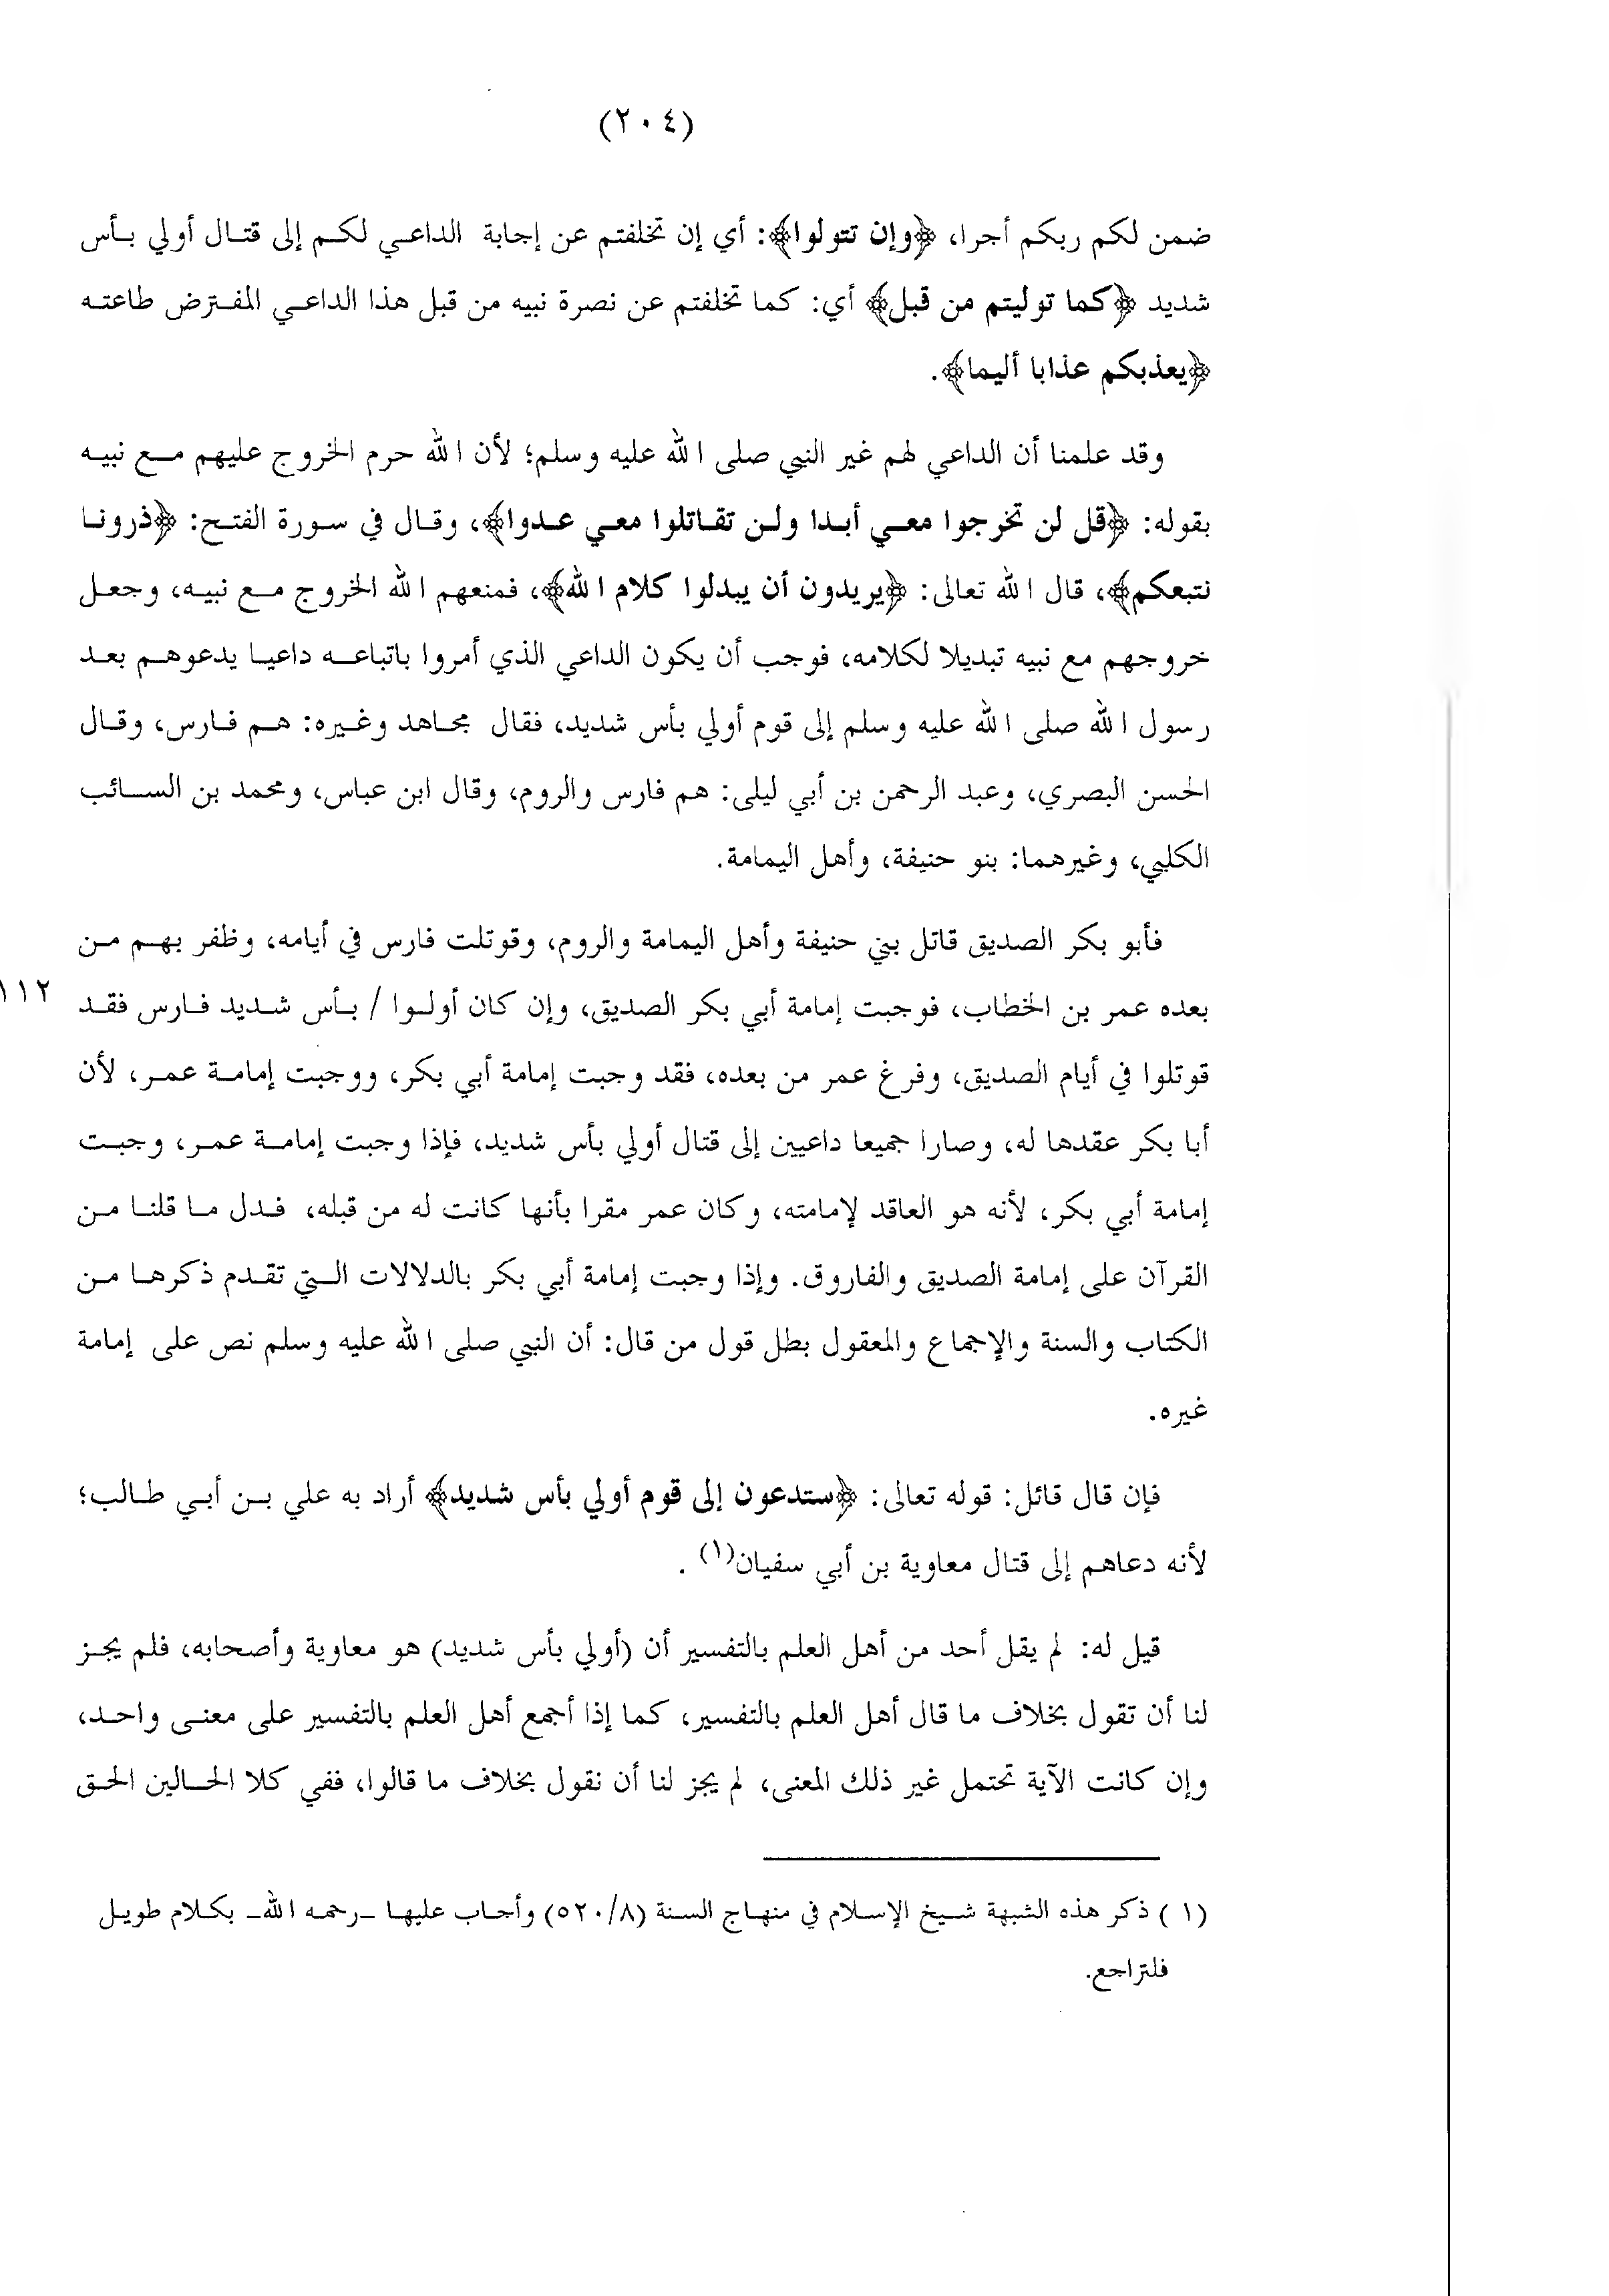 (٢٠٤)
ضمن لكم ربكم أجرا، ﴿وإن تتولوا﴾: أي إن تخلفتم عن إجابة الداعي لكم إلى قتال أولي بأس
شديد ﴿كما توليتم من قبل﴾ أي: كما تخلفتم عن نصرة نبيه من قبل هذا الداعي المفترض طاعته
﴿يعذبكم عذابا أليما﴾.
وقد علمنا أن الداعي لهم غير النبي صلى الله عليه وسلم؛ لأن الله حرم الخروج عليهم مع نبيه
بقوله: ﴿قل لن تخرجوا معي أبدا ولن تقاتلوا معي عدوا﴾، وقال في سورة الفتح: ﴿ذرونا
نتبعكم﴾، قال الله تعالى: ﴿يريدون أن يبدلوا كلام الله﴾، فمنعهم الله الخروج مع نبيه، وجعل
خروجهم مع نبيه تبديلا لكلامه، فوجب أن يكون الداعي الذي أمروا باتباعه داعيا يدعوهم بعد
رسول الله صلى الله عليه وسلم إلى قوم أولي بأس شديد، فقال مجاهد وغيره: هم فارس، وقال
الحسن البصري، وعبد الرحمن بن أبي ليلى: هم فارس والروم، وقال ابن عباس، ومحمد بن السائب
الكلبي، وغيرهما: بنو حنيفة، وأهل اليمامة.
فأبو بكر الصديق قاتل بني حنيفة وأهل اليمامة والروم، وقوتلت فارس في أيامه، وظفر بهم من
بعده عمر بن الخطاب، فوجبت إمامة أبي بكر الصديق، وإن كان أولوا / بأس شديد فارس فقد
١١٢
قوتلوا في أيام الصديق، وفرغ عمر من بعده، فقد وجبت إمامة أبي بكر، ووجبت إمامة عمر، لأن
أبا بكر عقدها له، وصارا جميعا داعيين إلى قتال أولي بأس شديد، فإذا وجبت إمامة عمر، وجبت
إمامة أبي بكر، لأنه هو العاقد لإمامته، وكان عمر مقرا بأنها كانت له من قبله، فدل ما قلنا من
القرآن على إمامة الصديق والفاروق. وإذا وجبت إمامة أبي بكر بالدلالات التي تقدم ذكرها من
الكتاب والسنة والإجماع والمعقول بطل قول من قال: أن النبي صلى الله عليه وسلم نص على إمامة
غيره.
فإن قال قائل: قوله تعالى: ﴿ستدعون إلى قوم أولي بأس شديد﴾ أراد به علي بن أبي طالب؛
لأنه دعاهم إلى قتال معاوية بن أبي سفيان(١) .
قيل له: لم يقل أحد من أهل العلم بالتفسير أن (أولي بأس شديد) هو معاوية وأصحابه، فلم يجز
لنا أن تقول بخلاف ما قال أهل العلم بالتفسير، كما إذا أجمع أهل العلم بالتفسير على معنى واحد،
وإن كانت الآية تحتمل غير ذلك المعنى، لم يجز لنا أن نقول بخلاف ما قالوا، ففي كلا الحالين الحق
(١ ) ذكر هذه الشبهة شيخ الإسلام في منهاج السنة (٥٢٠/٨) وأجاب عليها -رحمه الله- بكلام طويل
فلتراجع.